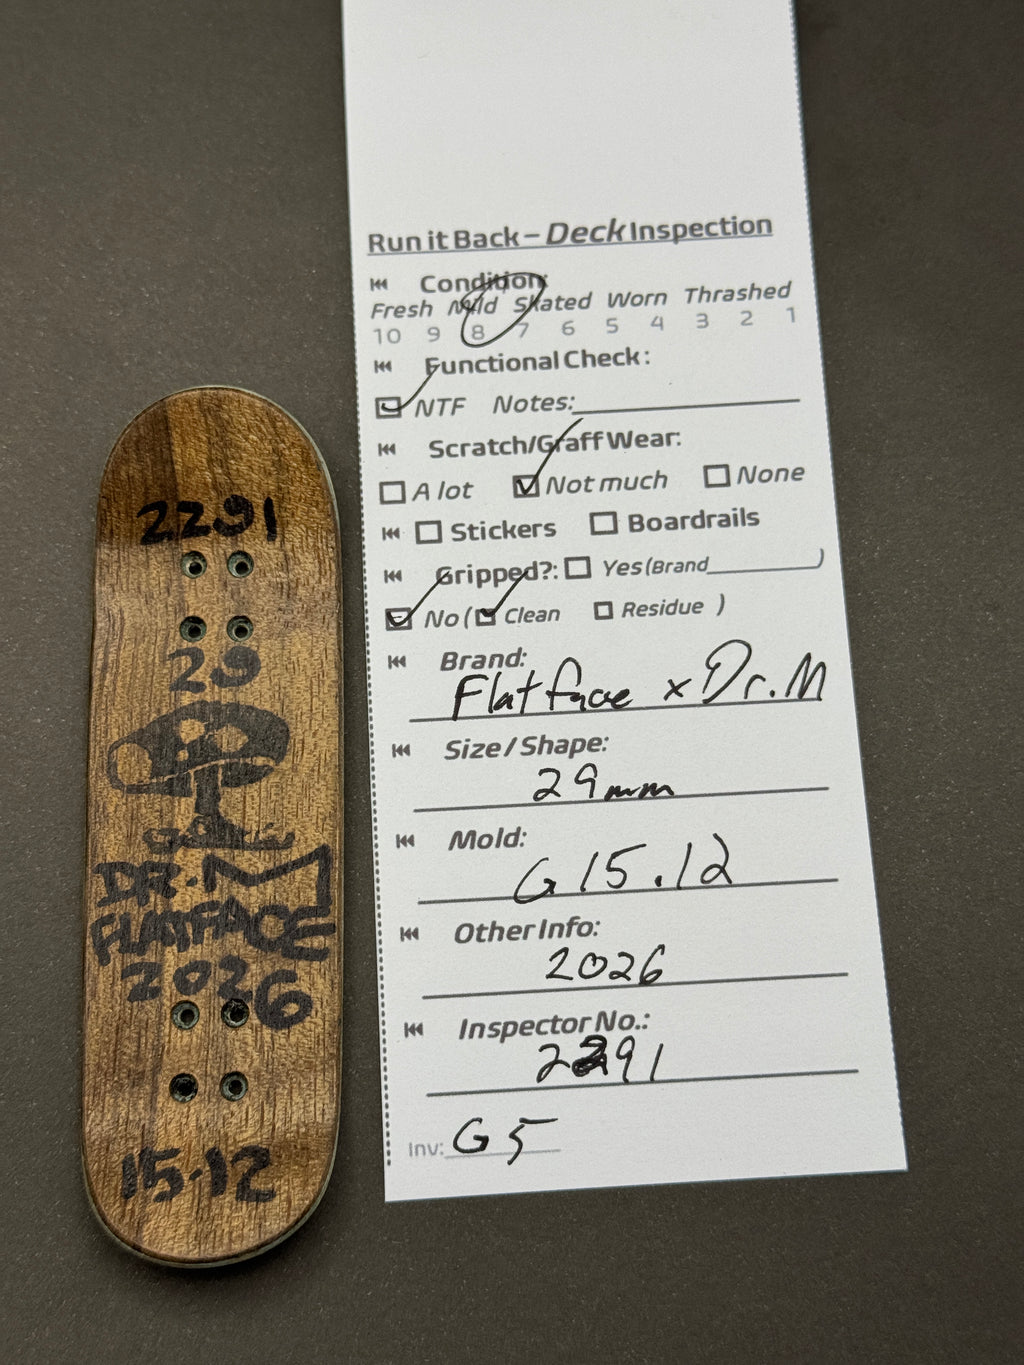 Run it Back – Deck Inspection
Condition:
Fresh Mild Skated Worn Thrashed
10 9 8 7 6 5 4 3 2 1
Functional Check:
NTF Notes:
Scratch/Graff Wear:
A lot Not much None
Stickers Boardrails
Gripped?: Yes (Brand )
No ( Clean Residue )
Brand:
Flatface x Dr. M
Size / Shape:
29mm
Mold:
G 15.12
Other Info:
2026
Inspector No.:
2291
Inv: G5
2291
29
DR. M
FLATFACE
2026
15.12